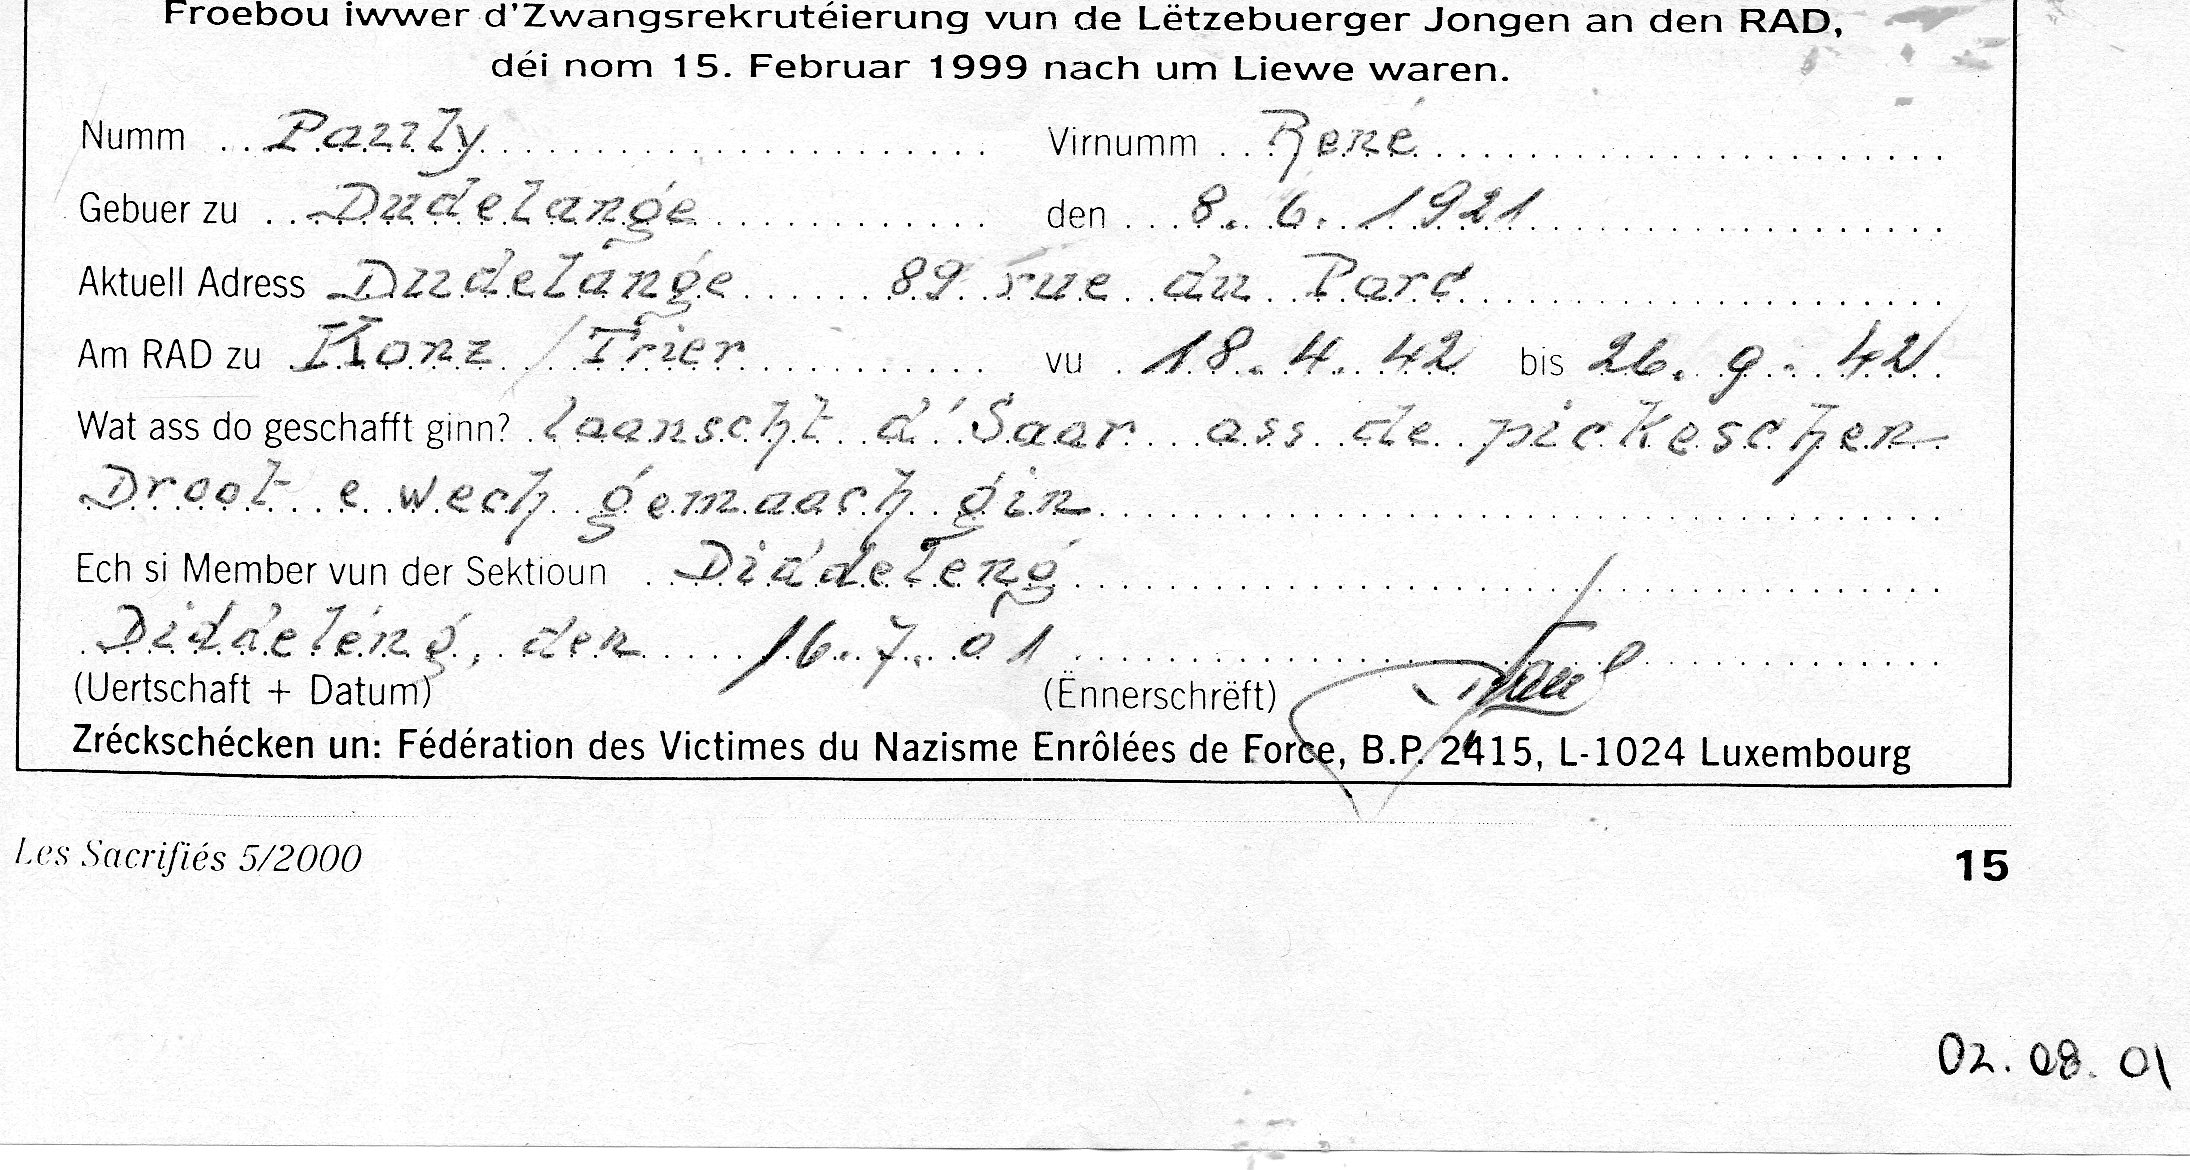 Froebou iwwer d'Zwangsrekrutéierung vun de Lëtzebuerger Jongen an den RAD,
déi nom 15. Februar 1999 nach um Liewe waren.
Numm Pauly Virnumm René
Gebuer zu Dudelange den 8. 6. 1921
Aktuell Adress Dudelange 89 rue du Parc
Am RAD zu Konz / Trier vu 18. 4. 42 bis 26. 9. 42
Wat ass do geschafft ginn? laanscht d'Saar ass de pickeschen
Droot e wech gemaach gin
Ech si Member vun der Sektioun Diddeleng
Diddeleng, den 16. 7. 01
(Uertschaft + Datum) (Ënnerschrëft)
Zréckschécken un: Fédération des Victimes du Nazisme Enrôlées de Force, B.P. 2415, L-1024 Luxembourg
Les Sacrifiés 5/2000 15
02. 08. 01